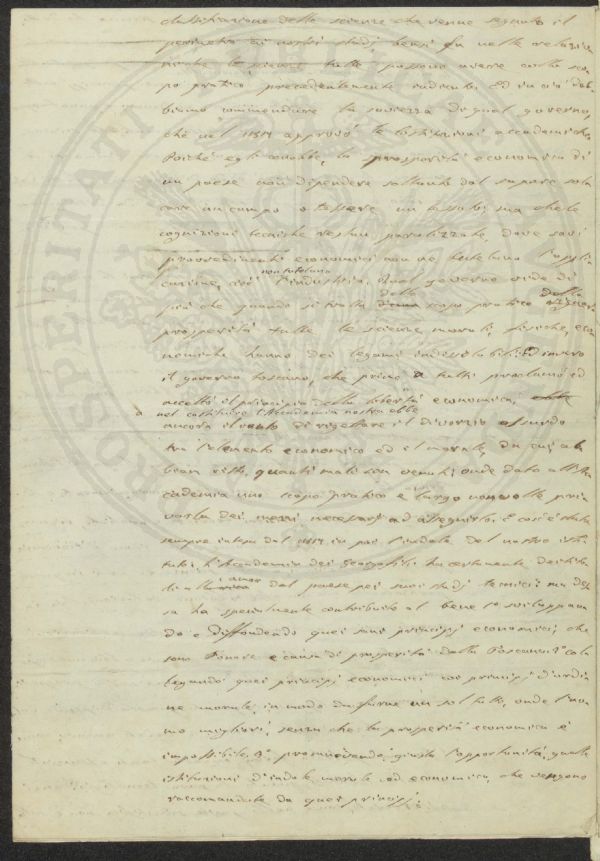 classificazione delle scienze che venne segnato il
perimetro ai nostri studj, bensì fu nelle relazioni
che le scienze tutte possono avere collo sco-
po pratico precedentemente indicato. Ed in ciò dob-
biamo commendare la saviezza di quel governo,
che nel 1817 approvò le Costituzioni accademiche.
Poiché egli conobbe, la prosperità economica di
un paese non dipendere soltanto dal sapere sol-
care un campo o tessere un tessuto; ma che le
cognizioni tecniche restan paralizzate, dove savi
provvedimenti economici non ne tutelano l'appli-
cazione, cioè non tutelano l'industria. Quel governo vide di
più che quando si tratta dello scopo pratico della
prosperità tutte le scienze morali, fisiche, eco-
nomiche hanno dei legami indissolubili. Ed invero
il governo toscano, che primo a tutti proclamò ed
accettò il principio della libertà economica,
a nel costituire l'Accademia nostra ebbe
ancora il vanto di rigettare il divorzio assurdo
tra l'elemento economico ed il morale, da cui ab-
biam visto quanti mali son venuti; onde dato all'Ac-
cademia uno scopo pratico e largo non volle pri-
varla dei mezzi necessarj ad asseguirlo. E così è stata
sempre intesa dal 1817 in poi l'indole del nostro isti-
tuto. L'Accademia dei Georgofili ha certamente
amor del paese pei suoi studj tecnici; ma des-
sa ha specialmente contribuito al bene lo sviluppan-
do e diffondendo quei sani principj economici, che
sono l'onore e causa di prosperità della Toscana;
legando quei principj economici coi principj d'ordi-
ne morale, in modo da farne un sol tutto, onde l'uo-
mo migliori, senza che la prosperità economica è
impossibile. E promuovendo, giusta l'opportunità, quelle
istituzioni d'indole morale ed economica, che vengono
raccomandate da quei principj.
PROSPERITATI